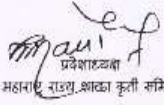 प्रदेशाध्यक्ष
महाराष्ट्र राज्य शाळा कृती समि